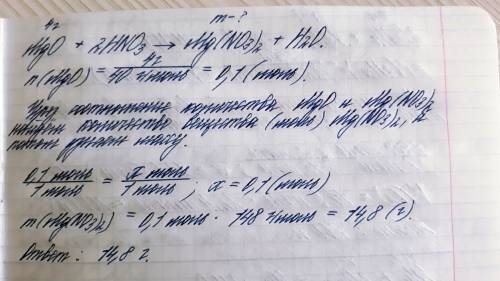 4г m-?
MgO + 2HNO₃ → Mg(NO₃)₂ + H₂O.
n(MgO) = 4г / 40 г/моль = 0,1 (моль).
Через соотношение количества MgO и Mg(NO₃)₂
находим количество вещества (моль) Mg(NO₃)₂, и
потом массу.
0,1 моль / 1 моль = x моль / 1 моль ; x = 0,1 (моль)
m(Mg(NO₃)₂) = 0,1 моль · 148 г/моль = 14,8 (г).
Ответ: 14,8 г.